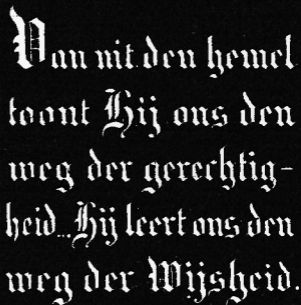 Van uit den hemel
toont Hij ons den
weg der gerechtig-
heid... Hij leert ons den
weg der Wijsheid.